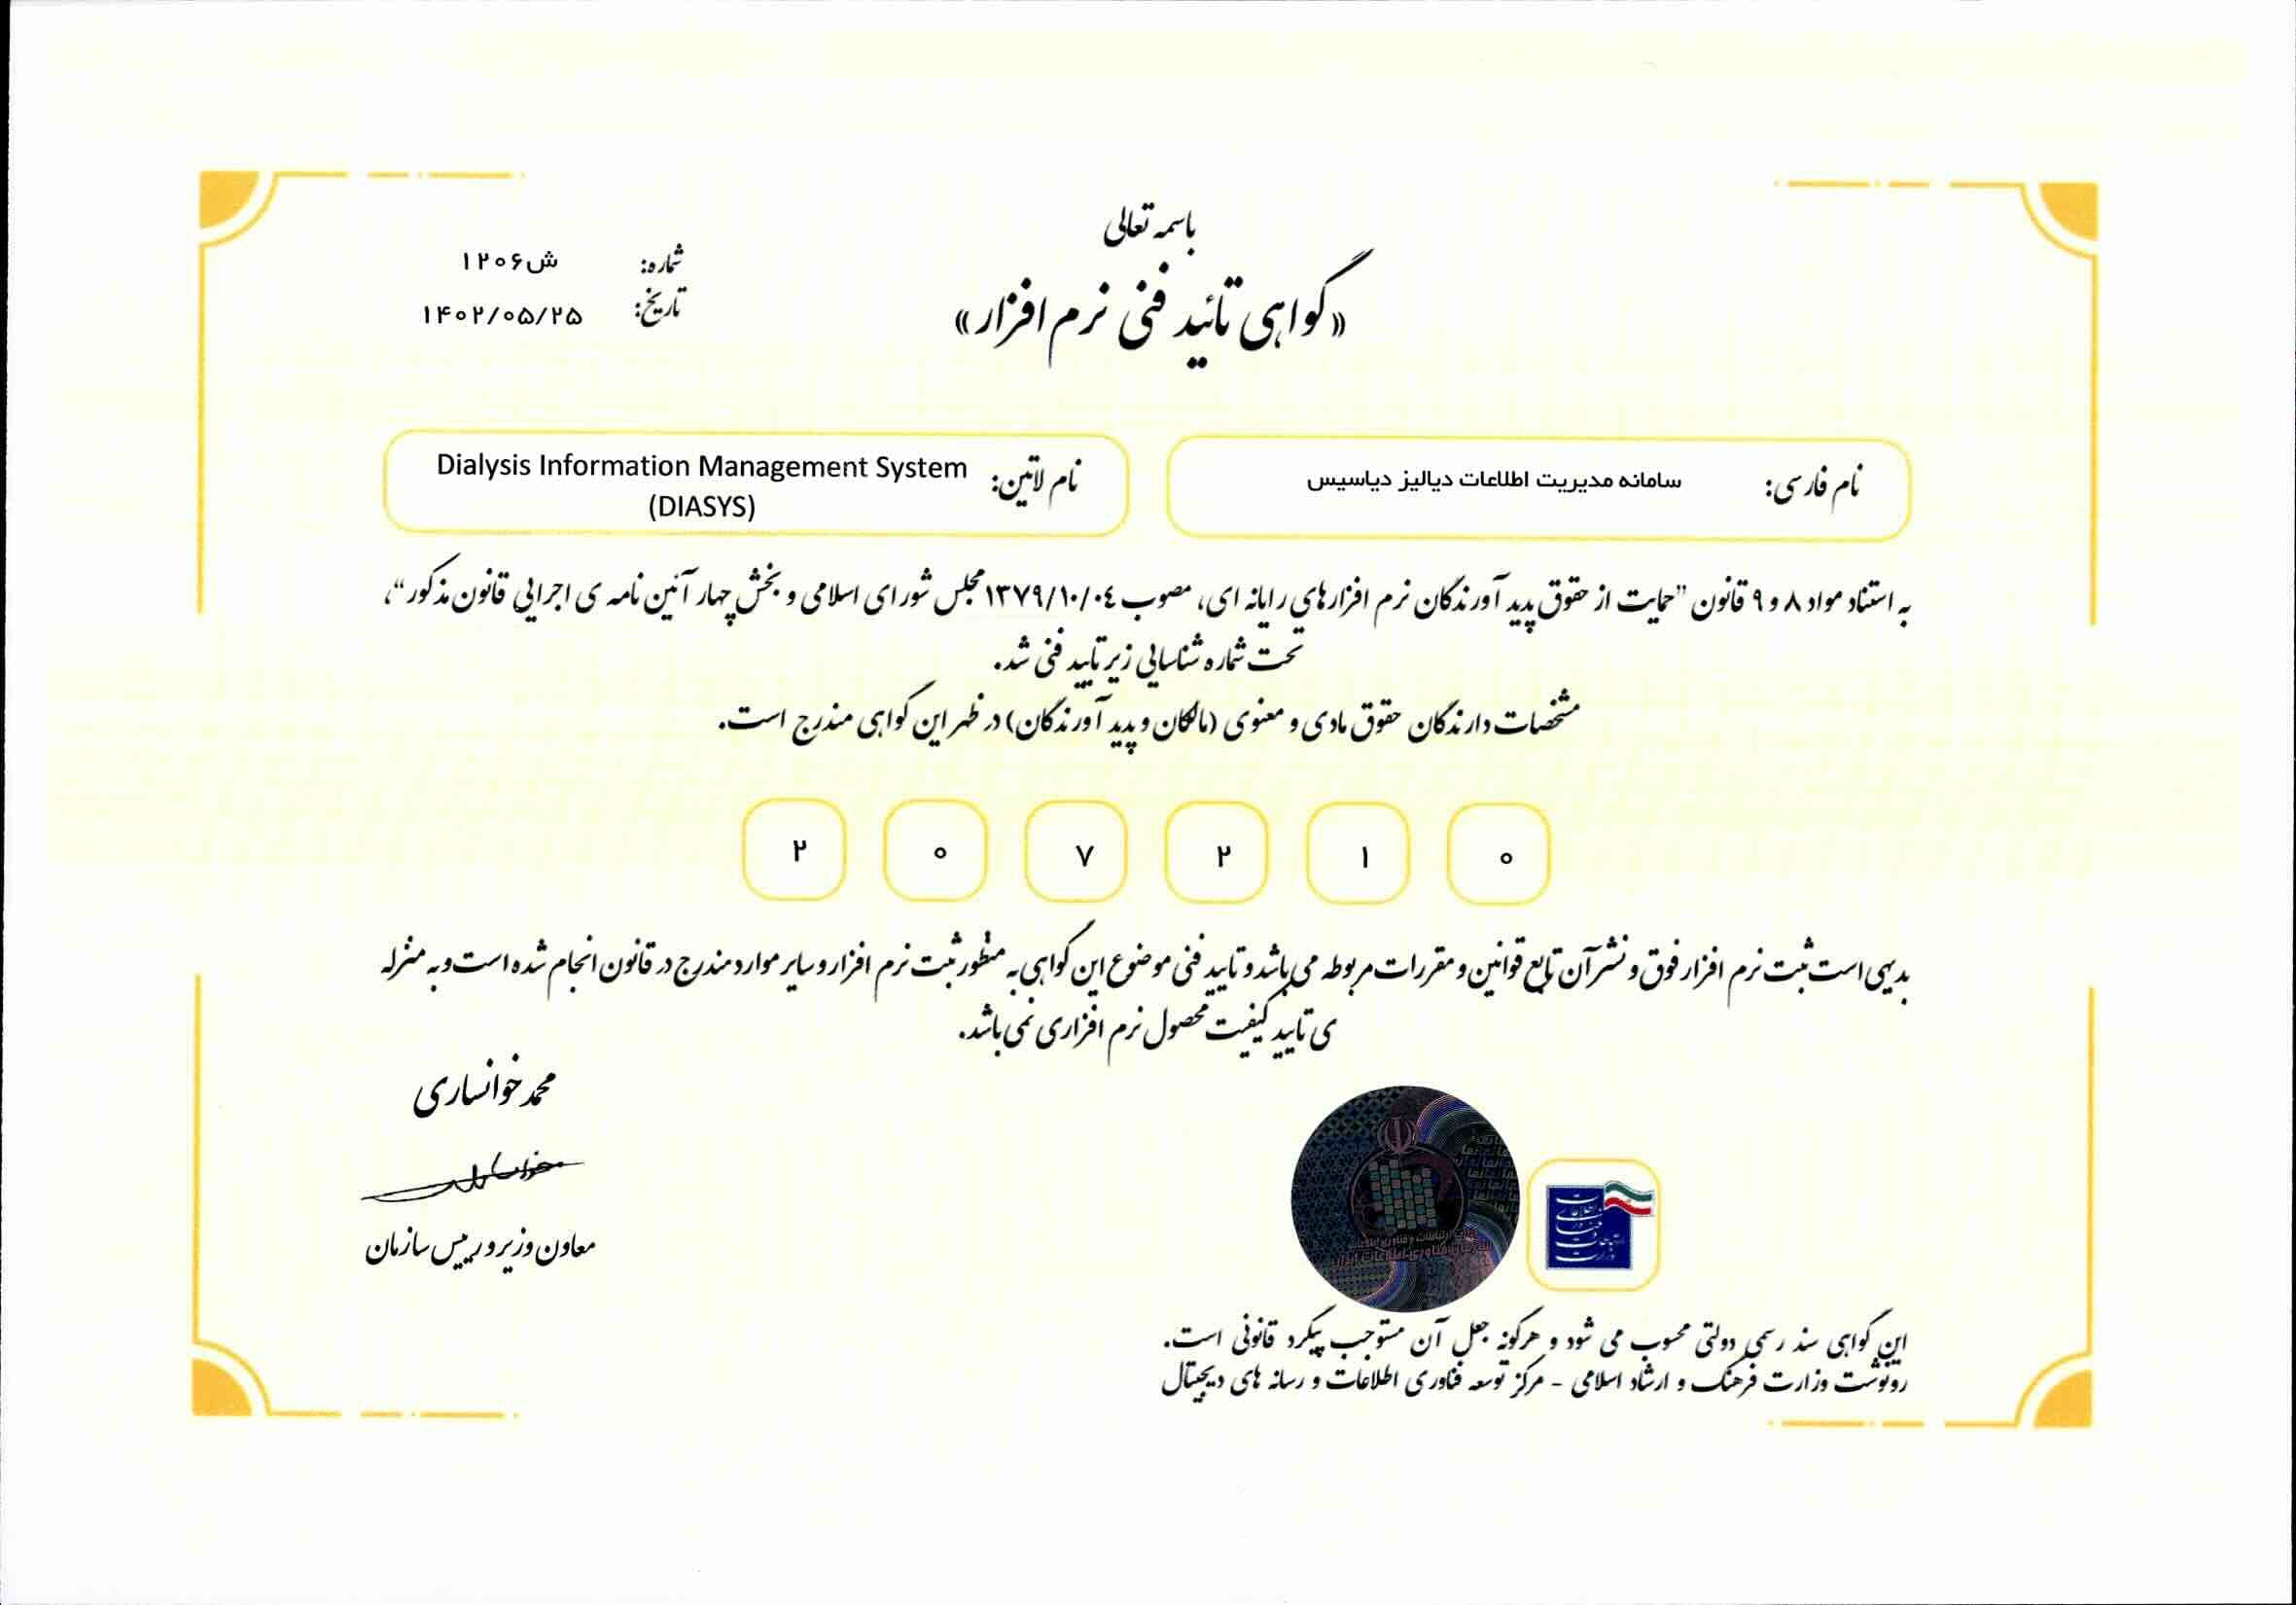 باسمه تعالی
«گواهی تائید فنی نرم افزار»
شماره: ش۱۲۰۶
تاریخ: ۱۴۰۲/۰۵/۲۵
نام فارسی: سامانه مدیریت اطلاعات دیالیز دیاسیس
نام لاتین: Dialysis Information Management System
(DIASYS)
به استناد مواد ۸ و ۹ قانون "حمایت از حقوق پدید آورندگان نرم افزارهای رایانه ای، مصوب ۱۳۷۹/۱۰/۰٤ مجلس شورای اسلامی و بخش چهار آئین نامه ی اجرایی قانون مذکور"،
تحت شماره شناسایی زیر تایید فنی شد.
مشخصات دارندگان حقوق مادی و معنوی (مالکان و پدید آورندگان) در ظهر این گواهی مندرج است.
۲ ۰ ۷ ۲ ۱ ۰
بدیهی است ثبت نرم افزار فوق و نشر آن تابع قوانین و مقررات مربوطه می باشد و تایید فنی موضوع این گواهی به منظور ثبت نرم افزار و سایر موارد مندرج در قانون انجام شده است و به منزله
ی تایید کیفیت محصول نرم افزاری نمی باشد.
محمد خوانساری
معاون وزیر و رییس سازمان
این گواهی سند رسمی دولتی محسوب می شود و هرگونه جعل آن مستوجب پیگرد قانونی است.
رونوشت وزارت فرهنگ و ارشاد اسلامی - مرکز توسعه فناوری اطلاعات و رسانه های دیجیتال